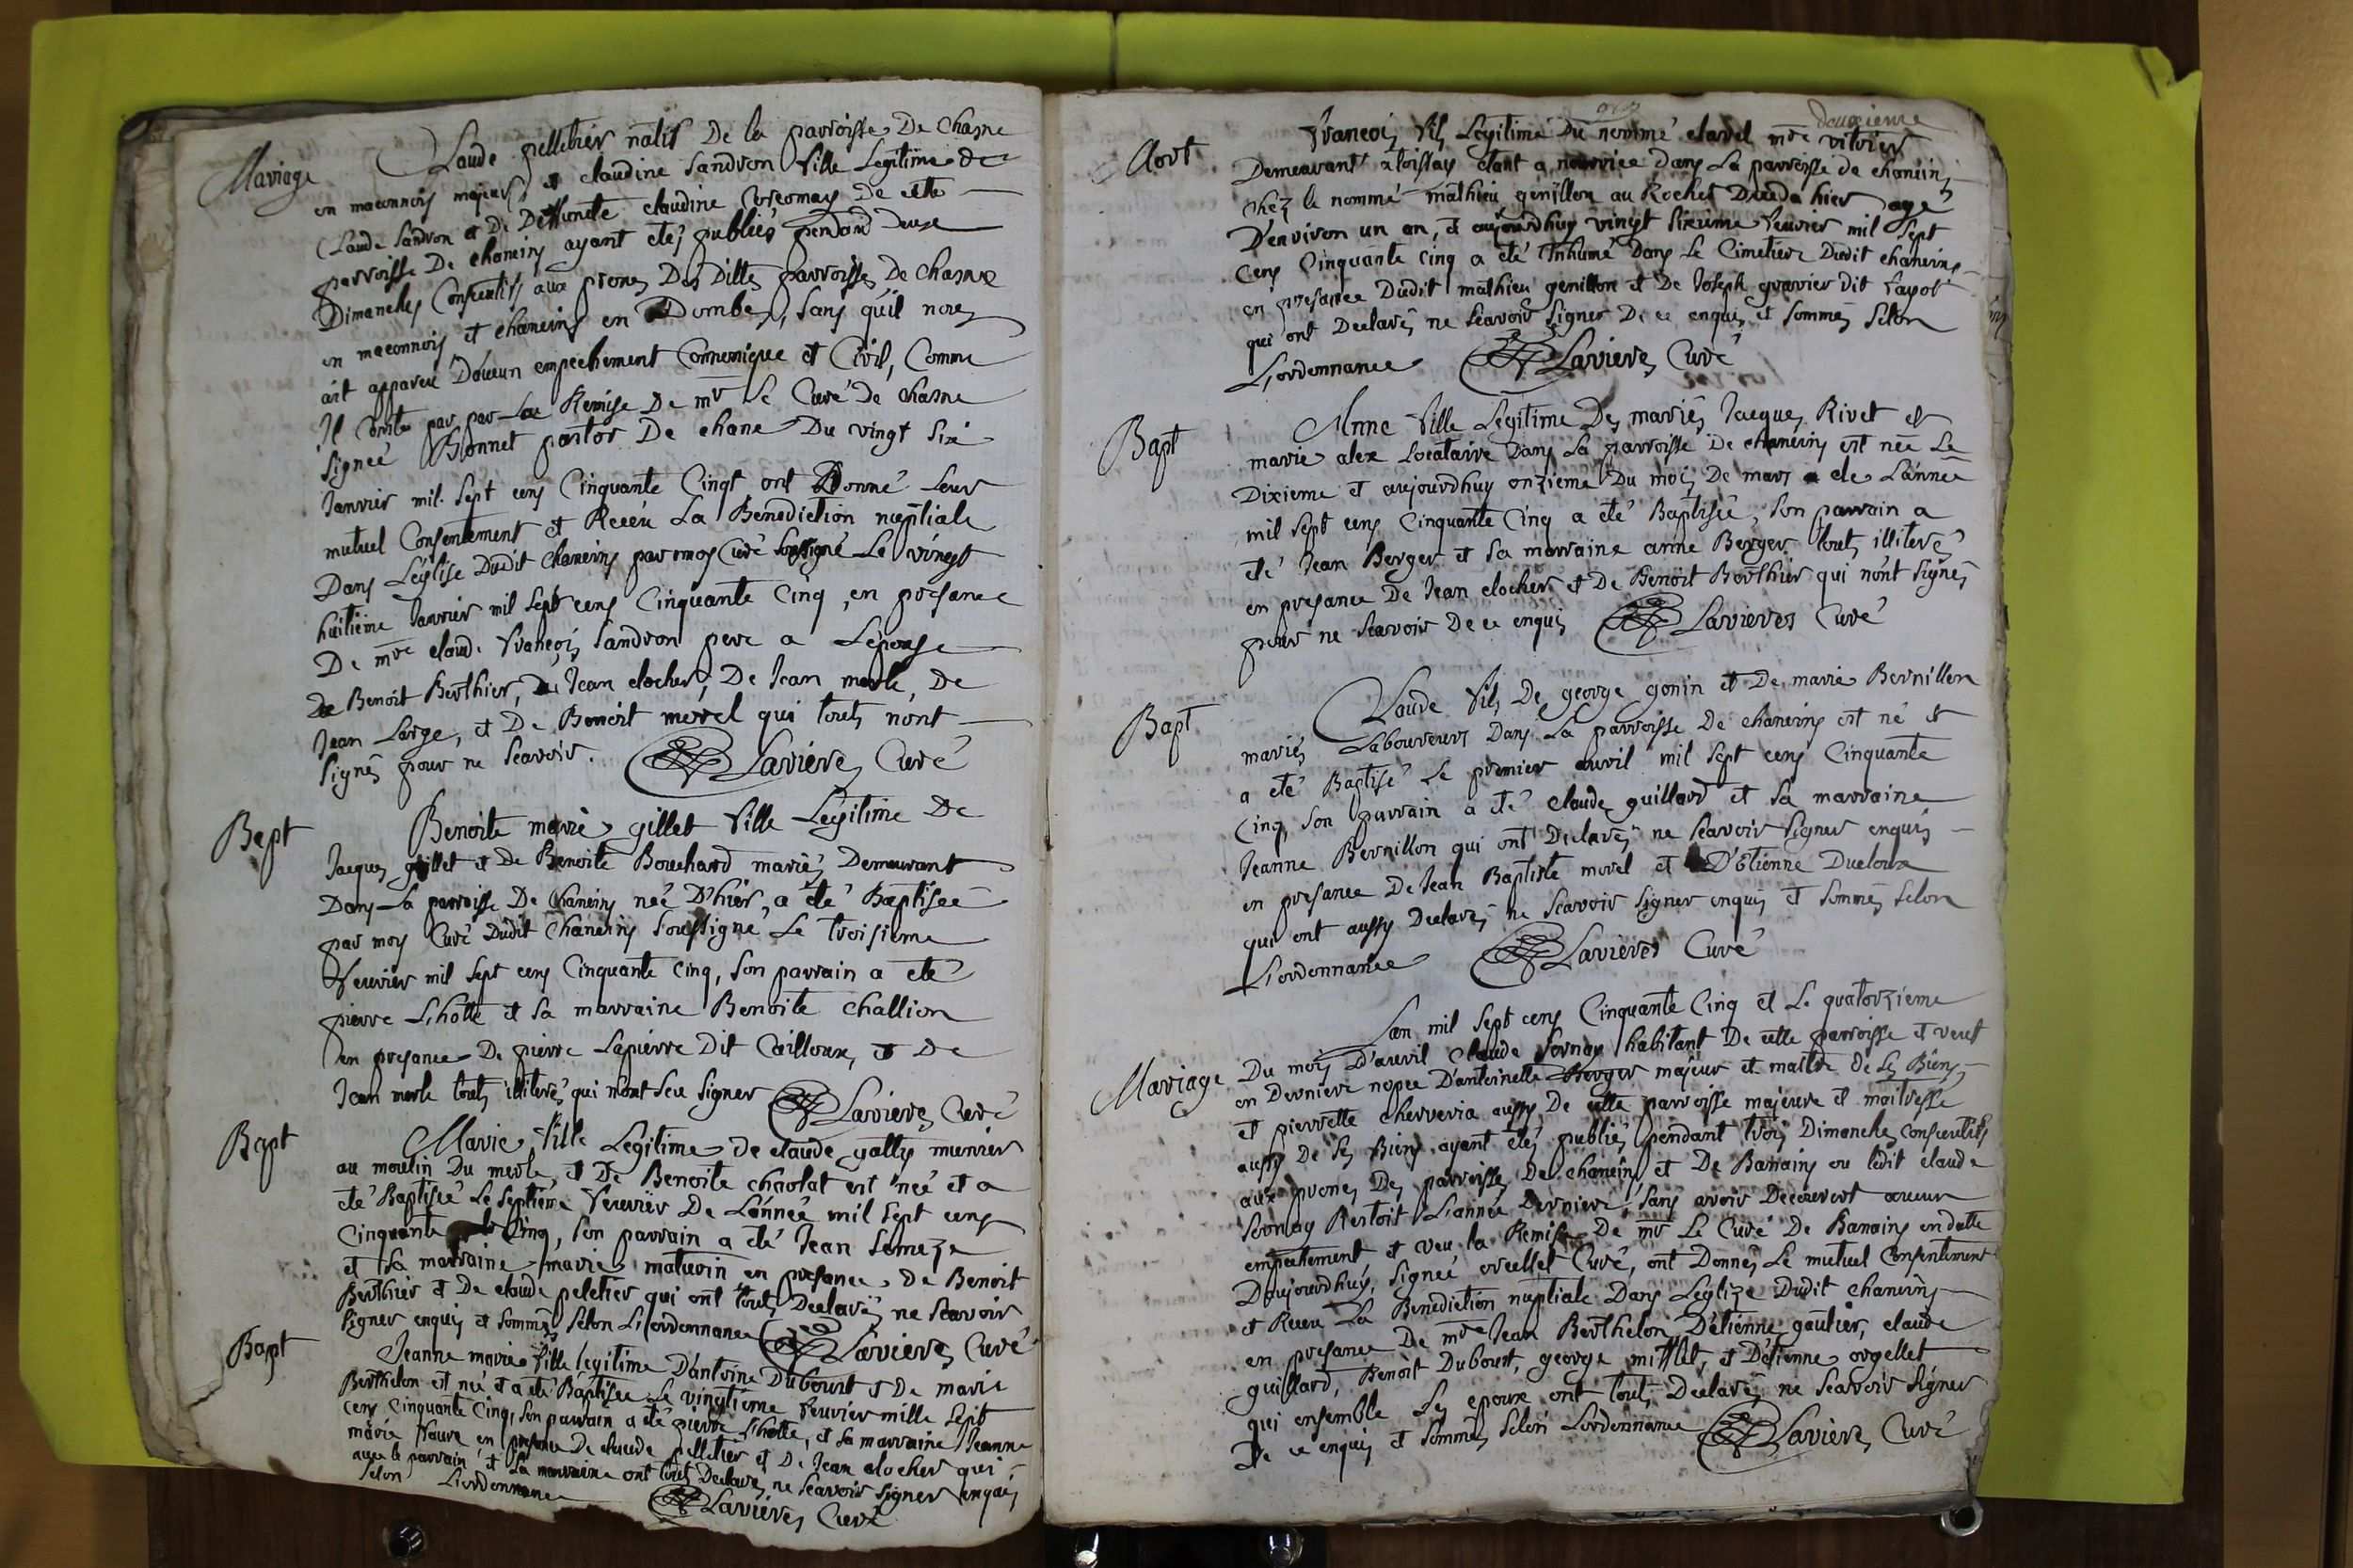 Mariage
Claude pelletier natif De la parroisse De Chasne
en maconnois majeur, et claudine Sandron fille Legitime de
Claude Sandron et De Deffuncte claudine De cette
parroisse De chaneins ayant etés publiés pendant Deux
Dimanches Consecutifs aux prones Des Dittes parroisses De Chasne
en maconnois et chaneins en Dombes, sans qu'il nores
ait appareu D'aucun empechement Cannonique et Civil, Comme
Il Conste par par La Remise De mr Le Curé de Chasne
Signée Bonnet pastor De chane Du vingt six
Janvier mil Sept cens Cinquante Cinqt ont Donné Leur
mutuel Consentement et Receu La Bénédiction nuptiale
Dans L'église Dudit Chaneins par moy Curé Soussigné Le vingt
huitième Janvier mil Sept cens Cinquante Cinq, en presance
De mre claude François Sandron pere a L'epouse
De Benoit Berthier, De Jean clocher, De Jean merle, De
Jean Large, et De Benoit morel qui touts n'ont
Signés pour ne Scavoir. Lavieres Curé
Bapt
Benoite marie gillet fille Legitime De
Jacques gillet et De Benoite Bouchard mariés Demeurant
Dans La parroisse De Chaneins née D'hier, a été Baptisée
par moy Curé Dudit Chaneins Soussigné Le troisieme
Feuvrier mil Sept cens Cinquante cinq, Son parrain a eté
pierre Lhotte et Sa marraine Benoite challion
en presance De pierre Lapierre Dit Cailloux, et De
Jean merle touts illiterés qui n'ont Sçu Signer Lavieres Curé
Bapt
Marie fille Legitime de claude gally munier
au moulin Du merle, et De Benoite chaolat est née et a
eté Baptisée Le Septième Feuvrier De L'année mil Sept cens
Cinquante Cinq, Son parrain a été Jean Semeze
et Sa marraine marie maturin en presance De Benoit
Berthier et De claude peletier qui ont touts Declarés ne Scavoir
Signer enquis et Sommés Selon L'ordonnance Lavieres Curé
Bapt
Jeanne marie fille legitime D'antoine Dubourt et De marie
Berthelon est née et a été Baptisée Le vingtième Feuvrier mille Sept
cens Cinquante Cinq, Son parrain a été pierre Lhotte, et Sa marraine Jeanne
marie Faure en presance De claude pelletier et De Jean clocher qui
avec le parrain et La marraine ont touts Declarés ne Scavoir Signer enquis
Selon L'ordonnance Lavieres Curé
deuxieme
Mort
François fils Legitime Du nommé clavel mre vitrier
Demeurant a toissay etant a nourrice dans La parroisse de chaneins
chez le nommé mathieu genillon au Rochet Deceda hier agé
D'environ un an, et aujourdhuy vingt Sixieme feuvrier mil Sept
Cens Cinquante cinq a été Inhumé Dans Le Cimetiere Dudit chaneins
en presance Dudit mathieu genillon et De Joseph gravier dit Fayot
qui ont Declarés ne Scavoir Signer De ce enquis et Sommés Selon
L'ordonnance Lavieres Curé
Bapt
Anne fille Legitime Des mariés Jacques Rivet et
marie alex Locataire Dans La parroisse De chaneins est née Le
Dixieme et aujourdhuy onzieme Du mois De mars de L'année
mil Sept cens Cinquante Cinq a été Baptisée, Son parrain a
été Jean Berger et Sa marraine anne Berger touts illiterés
en presance De Jean clocher et De Benoit Berthier qui n'ont Signés
pour ne Scavoir De ce enquis Lavieres Curé
Bapt
Claude fils De george gonin et De marie Bernillon
mariés Laboureurs Dans La parroisse De chaneins est né et
a été Baptisé Le premier auvril mil Sept cens Cinquante
Cinq, Son parrain a été claude guillard et Sa marraine
Jeanne Bernillon qui ont Declarés ne Scavoir Signer enquis
en presance De Jean Baptiste morel et D'Etienne Ducloux
qui ont aussy Declarés ne Scavoir Signer enquis et Sommés Selon
L'ordonnance Lavieres Curé
Mariage
L'an mil Sept cens Cinquante Cinq et Le quatorzieme
Du mois D'auvril Claude Sornay habitant De cette parroisse et veuf
en Derniere nopce D'antoinette Berger majeur et maitre de Ses Biens
et pierrette cherveria aussy De cette parroisse majeure et maitresse
aussy De Ses Biens ayant etés publiés pendant trois Dimanches Consecutifs
aux prones Des parroisses De chaneins et De Banains ou ledit claude
Sornay Restoit L'année Derniere, Sans avoir Decouvert aucun
empechement et veu la Remise De mr Le Curé De Banains en datte
D'aujourdhuy, Signée Curé, ont Donnés Le mutuel Consentement
et Receu La Benediction nuptiale Dans Leglize Dudit chaneins
en presance De mre Jean Berthelon, D'étienne gautier, claude
guillard, Benoit Dubourt, george mifflet, et D'étienne orgellet
qui ensemble Les epoux ont touts Declarés ne Scavoir Signer
De ce enquis et Sommés Selon L'ordonnance Lavieres Curé